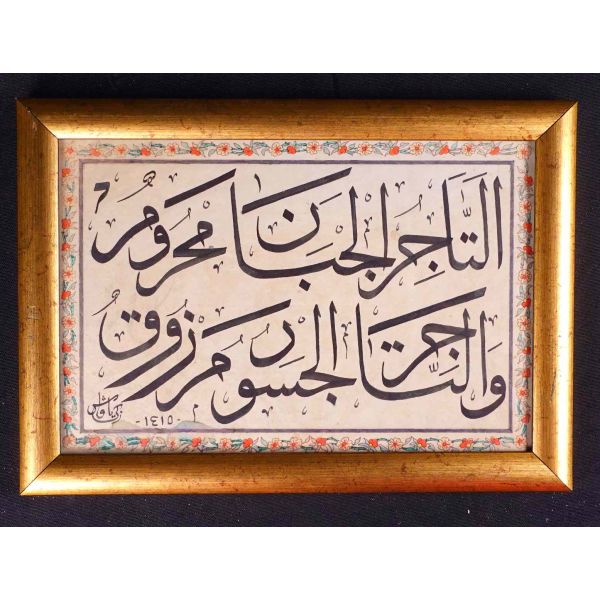 التَّاجِرُ الجَبَانُ مَحْرُومٌ
وَالتَّاجِرُ الجَسُورُ مَرْزُوقٌ
١٤١٥